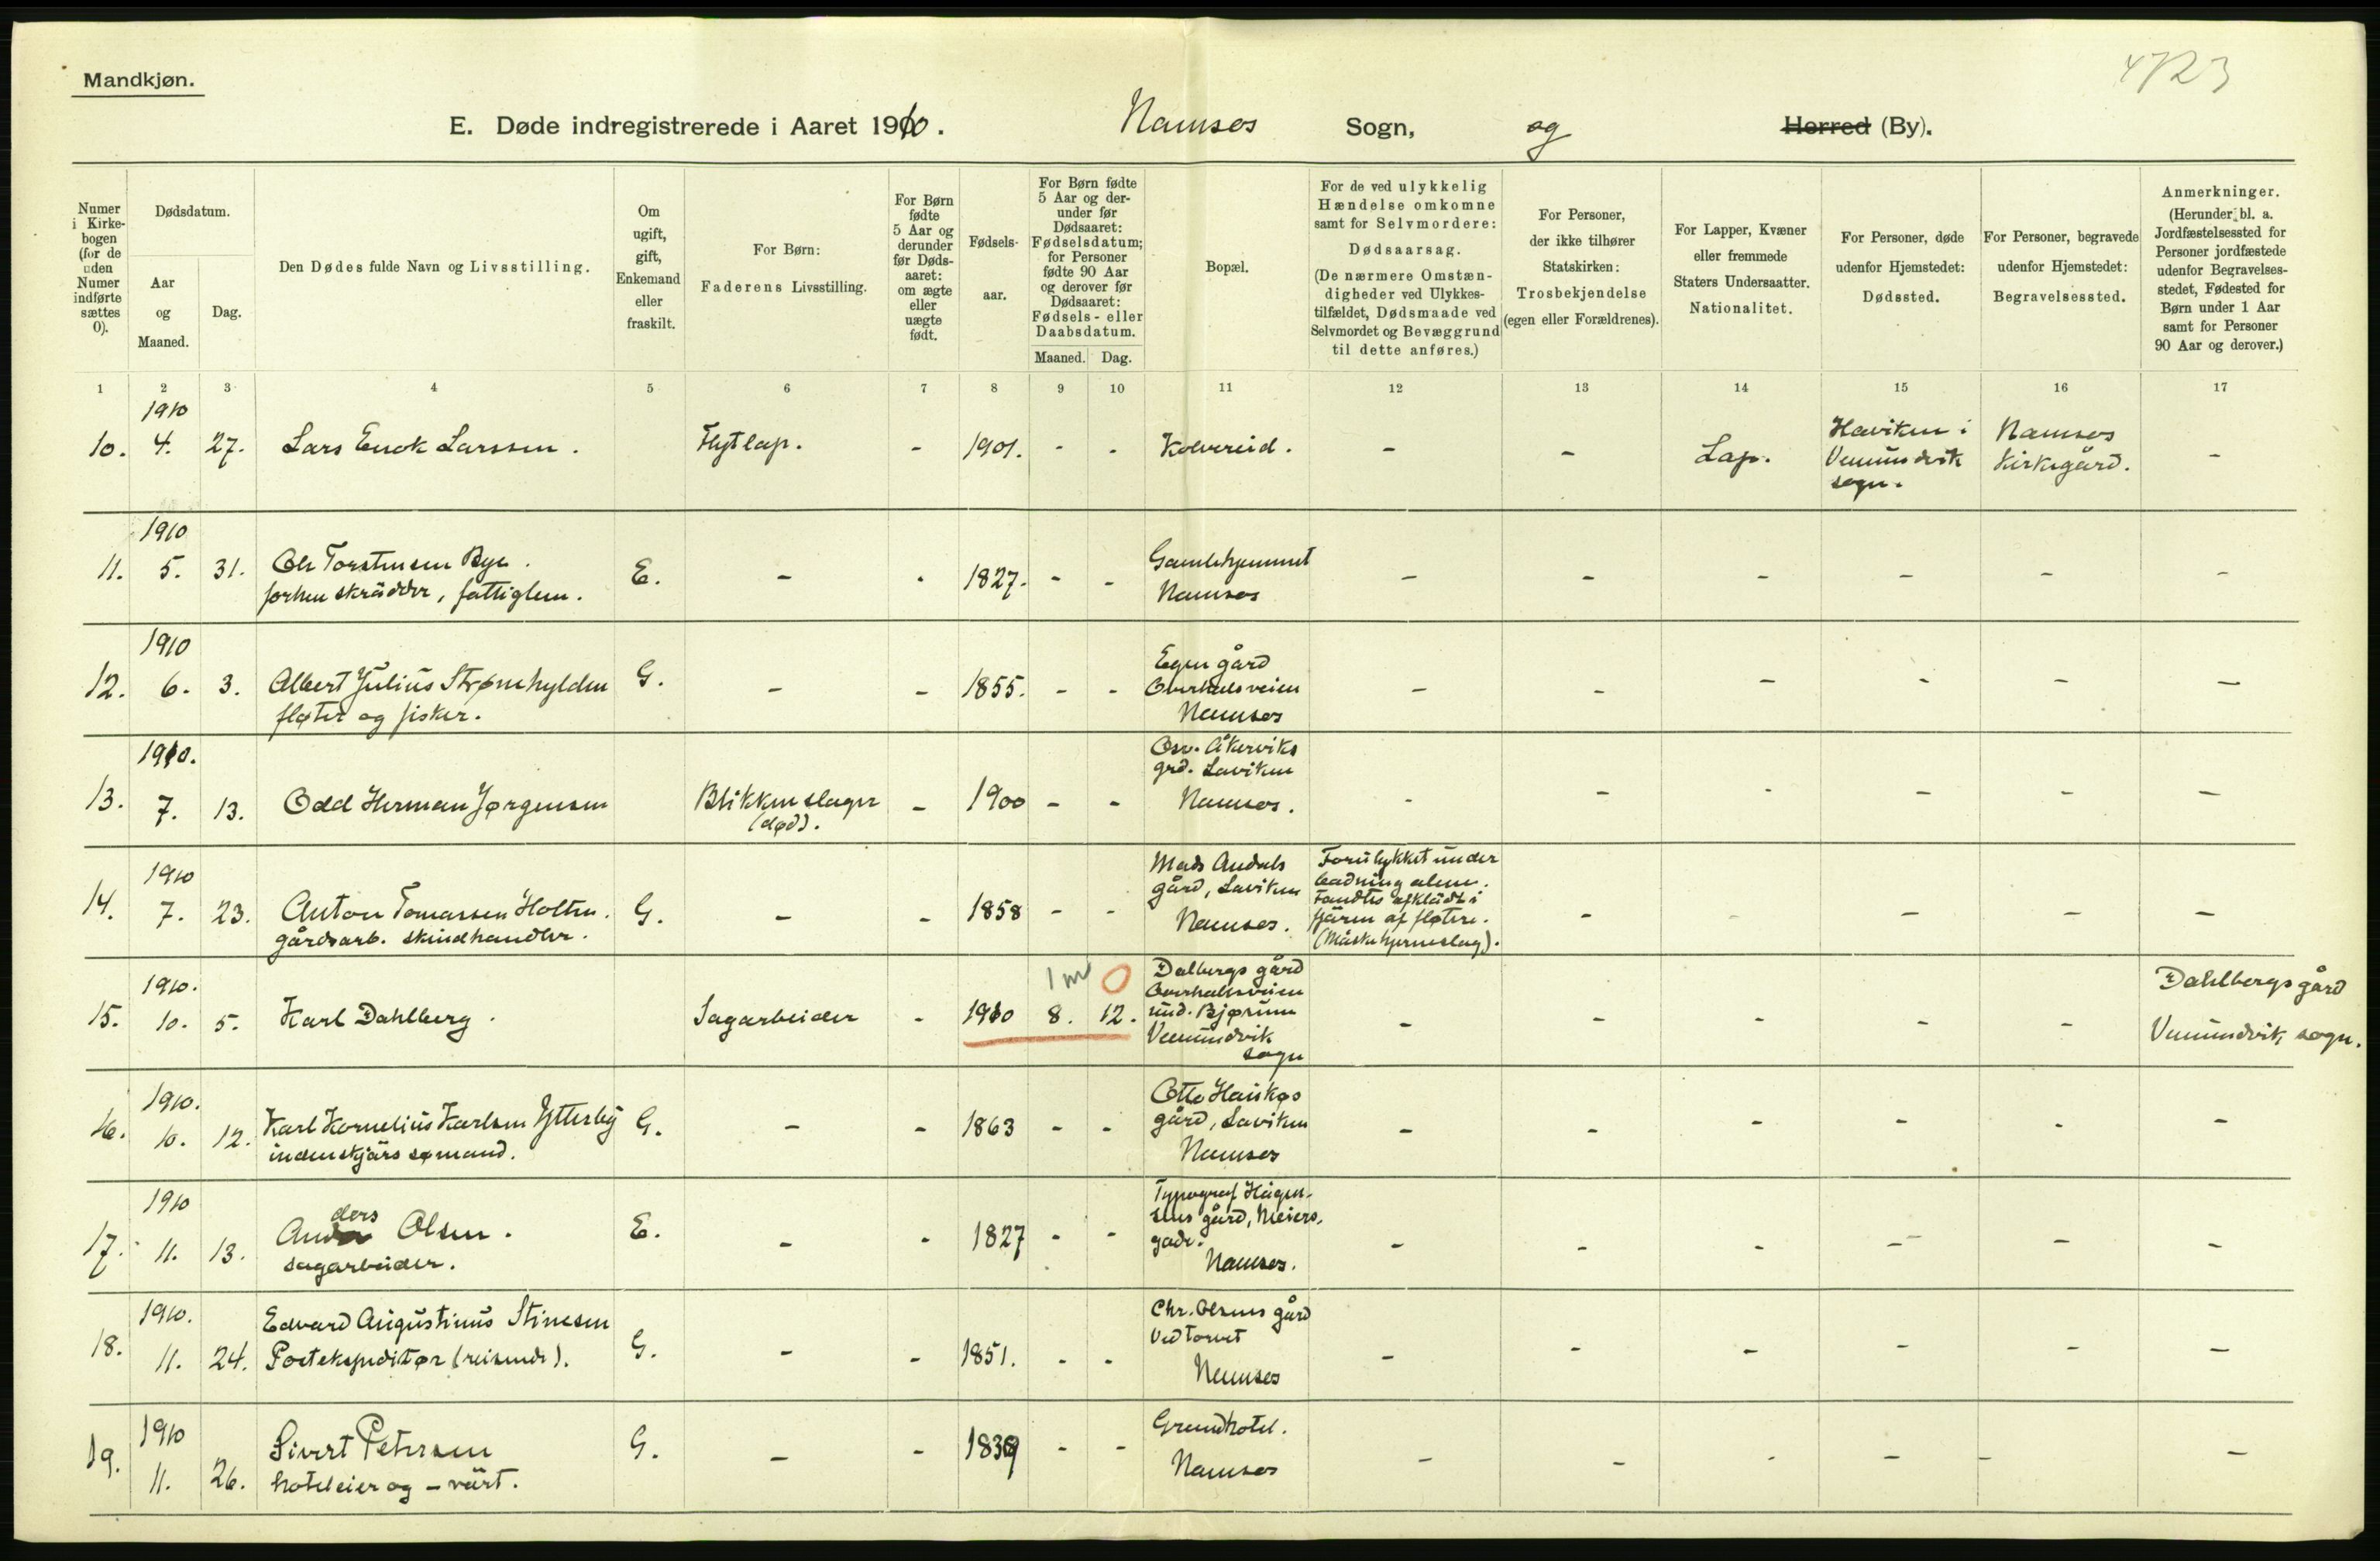 Mandkjøn.
4723
E. Døde indregistrerede i Aaret 1910. Namsos Sogn, og Herred (By).
Numer i Kirkebogen (for de uden Numer indførte sættes 0).
Dødsdatum.
Aar og Maaned.
Dag.
Den Dødes fulde Navn og Livsstilling.
Om ugift, gift, Enkemand eller fraskilt.
For Børn: Faderens Livsstilling.
For Børn fødte 5 Aar og derunder før Dødsaaret: om ægte eller uægte født.
Fødselsaar.
For Børn fødte 5 Aar og derunder før Dødsaaret: Fødselsdatum; for Personer fødte 90 Aar og derover før Dødsaaret: Fødsels- eller Daabsdatum.
Maaned. Dag.
Bopæl.
For de ved ulykkelig Hændelse omkomne samt for Selvmordere: Dødsaarsag. (De nærmere Omstændigheder ved Ulykkestilfældet, Dødsmaade ved Selvmordet og Bevæggrund til dette anføres.)
For Personer, der ikke tilhører Statskirken: Trosbekjendelse (egen eller Forældrenes).
For Lapper, Kvæner eller fremmede Staters Undersaatter. Nationalitet.
For Personer, døde udenfor Hjemstedet: Dødssted.
For Personer, begravede udenfor Hjemstedet: Begravelsessted.
Anmerkninger. (Herunder bl. a. Jordfæstelsessted for Personer jordfæstede udenfor Begravelsesstedet, Fødested for Børn under 1 Aar samt for Personer 90 Aar og derover.)
1 2 3 4 5 6 7 8 9 10 11 12 13 14 15 16 17
10. 1910 4. 27. Lars Enok Larssen. Flytlap. - 1901. - - Kolvereid. - - Lap. Haviken i Vemundvik sogn. Namsos Kirkegård. -
11. 1910 5. 31. Ole Torstensen Bye.
forhen skrädder, fattiglem. E. - - 1827. - - Gamlehjemmet Namsos - - - - - -
12. 1910 6. 3. Albert Julius Strømhylden
fløter og fisker. G. - - 1855. - - Egen gård Overhalsveien Namsos - - - - - -
13. 1910. 7. 13. Odd Herman Jørgensen Blikkenslager (død). - 1900 - - Osv. Åkerviks grd. Laviken Namsos. - - - - - -
14. 1910 7. 23. Anton Tomassen Holten.
gårdsarb. skindhandler. G. - - 1858 - - Mads Andals gård, Laviken Namsos. Forulykket under badning alene. Fandtes afklädt i fjären af fløtere. (Måske hjerneslag). - - - - -
15. 1910. 10. 5. Karl Dahlberg. Sagarbeider - 1910 8. 12. 1 m 0 Dalbergs gård Overhalsveien und. Bjørum Vemundvik sogn - - - - - Dahlbergs gård Vemundvik sogn.
16. 1910. 10. 12. Karl Kornelius Karlsen Ytterby
indenskjärs sømand. G. - - 1863 - - Otto Haukøs gård, Laviken Namsos - - - - - -
17. 1910 11. 13. Anders Olsen.
sagarbeider. E. - - 1827 - - Typograf Hågensens gård, Meiersgade. Namsos. - - - - - -
18. 1910. 11. 24. Edvard Augustinus Stinesen
Postekspeditør (reisende). G. - - 1851. - - Chr. Olsens gård Ved torvet Namsos - - - - - -
19. 1910 11. 26. Sivert Petersen
hoteleier og - värt. G. - - 1839 - - Grand hotel. Namsos - - - - - -